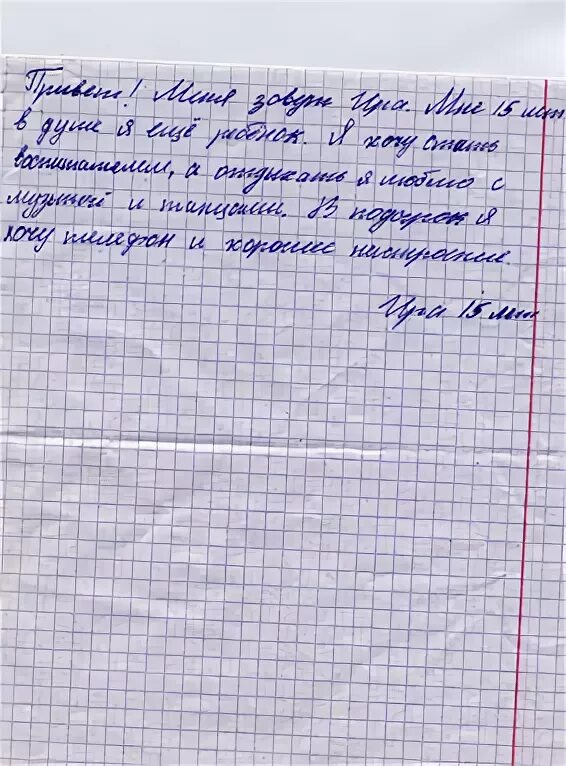 Привет! Меня зовут Ира. Мне 15 лет
в душе я ещё ребёнок. Я хочу стать
воспитателем, а отдыхать я люблю с
музыкой и танцами. В подарок я
хочу телефон и хорошее настроение.
Ира 15 лет